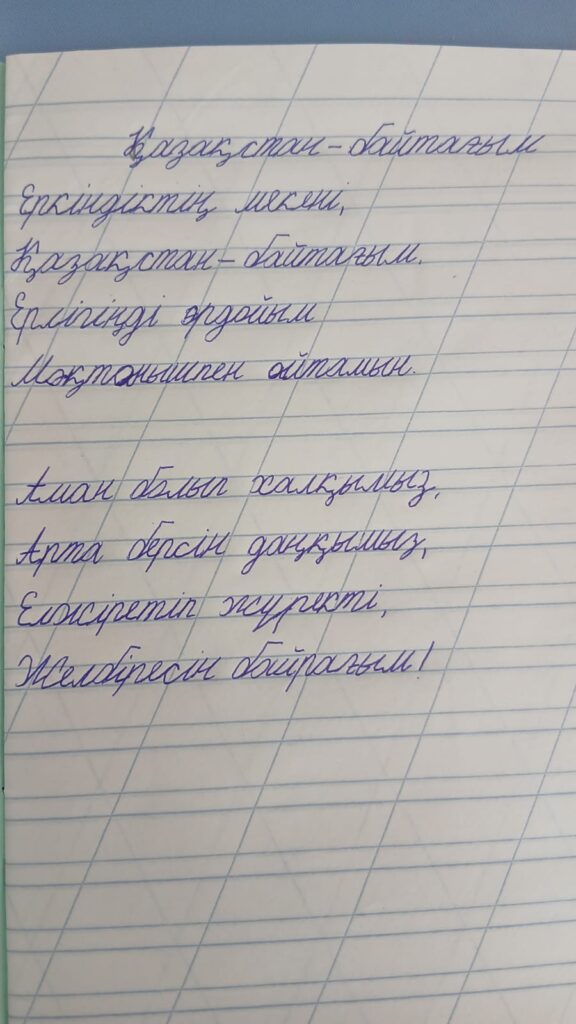 Қазақстан – байтағым
Еркіндіктің мекені,
Қазақстан – байтағым.
Ерлігіңді әрдайым
Мақтанышпен айтамын.
Аман болып халқымыз,
Арта берсін даңқымыз,
Елжіретіп жүректі,
Желбіресін байрағым!